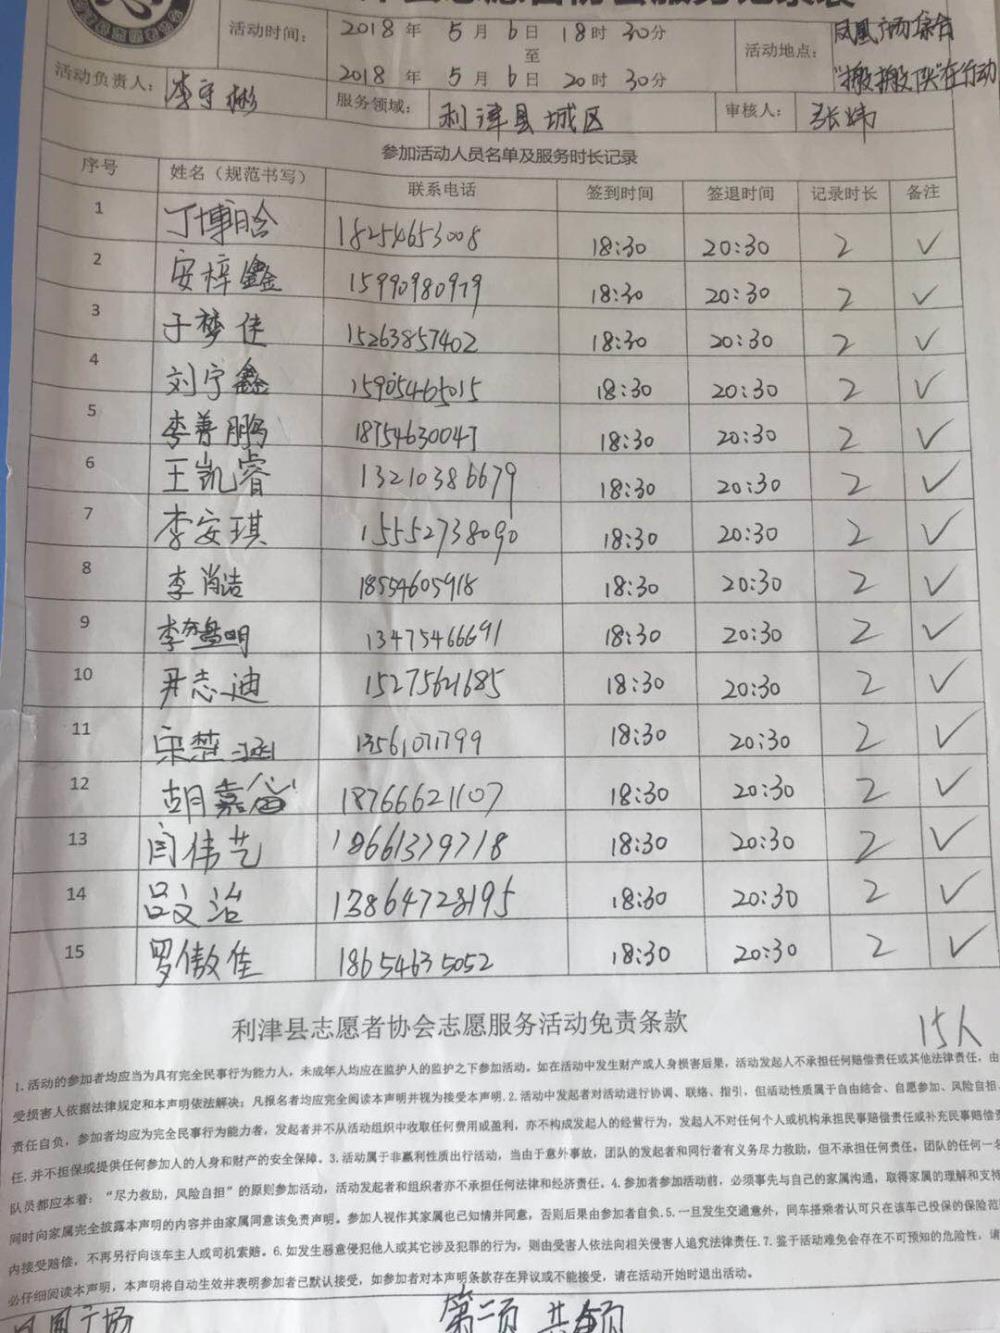 活动时间： 2018 年 5 月 6 日 18 时 30 分
至
2018 年 5 月 6 日 20 时 30 分
活动地点： 凤凰广场集合
"搬搬队"在行动
活动负责人： 李守彬
服务领域： 利津县城区 审核人： 张炜
参加活动人员名单及服务时长记录
序号 姓名（规范书写） 联系电话 签到时间 签退时间 记录时长 备注
1 丁博晗 18254653008 18:30 20:30 2 ✓
2 安梓鑫 15990980979 18:30 20:30 2 ✓
3 于梦佳 15263857402 18:30 20:30 2 ✓
4 刘宇鑫 15905465015 18:30 20:30 2 ✓
5 李善鹏 18754630047 18:30 20:30 2 ✓
6 王凯睿 13210386679 18:30 20:30 2 ✓
7 李安琪 15552738090 18:30 20:30 2 ✓
8 李肖洁 18554605918 18:30 20:30 2 ✓
9 13475466691 18:30 20:30 2 ✓
10 尹志迪 15275621685 18:30 20:30 2 ✓
11 宋楚涵 13561071799 18:30 20:30 2 ✓
12 胡嘉 18766621107 18:30 20:30 2 ✓
13 闫伟艺 18661379718 18:30 20:30 2 ✓
14 吕文治 13864728195 18:30 20:30 2 ✓
15 罗傲佳 18654635052 18:30 20:30 2 ✓
利津县志愿者协会志愿服务活动免责条款
15人
1.活动的参加者均应当为具有完全民事行为能力人，未成年人均应在监护人的监护之下参加活动。如在活动中发生财产或人身损害后果，活动发起人不承担任何赔偿责任或其他法律责任，由
受损害人依据法律规定和本声明依法解决；凡报名者均应完全阅读本声明并视为接受本声明.2.活动中发起者对活动进行协调、联络、指引，但活动性质属于自由结合、自愿参加、风险自担、
责任自负，参加者均应为完全民事行为能力者，发起者并不从活动组织中收取任何费用或盈利，亦不构成发起人的经营行为，发起人不对任何个人或机构承担民事赔偿责任或补充民事赔偿责
任.并不担保或提供任何参加人的人身和财产的安全保障。3.活动属于非赢利性质出行活动，当由于意外事故，团队的发起者和同行者有义务尽力救助，但不承担任何责任。团队的任何一名
队员都应本着："尽力救助，风险自担"的原则参加活动，活动发起者和组织者亦不承担任何法律和经济责任。4.参加者参加活动前，必须事先与自己的家属沟通，取得家属的理解和支持
同时向家属完全披露本声明的内容并由家属同意该免责声明。参加人视作其家属也已知情并同意，否则后果由参加者自负.5.一旦发生交通意外，同车搭乘者认可只在该车已投保的保险范
内接受赔偿，不再另行向该车主人或司机索赔。6.如发生恶意侵犯他人或其它涉及犯罪的行为，则由受害人依法向相关侵害人追究法律责任.7.鉴于活动难免会存在不可预知的危险性，请
必仔细阅读本声明，本声明将自动生效并表明参加者已默认接受，如参加者对本声明条款存在异议或不能接受，请在活动开始时退出活动。
广场 第二页 共 页